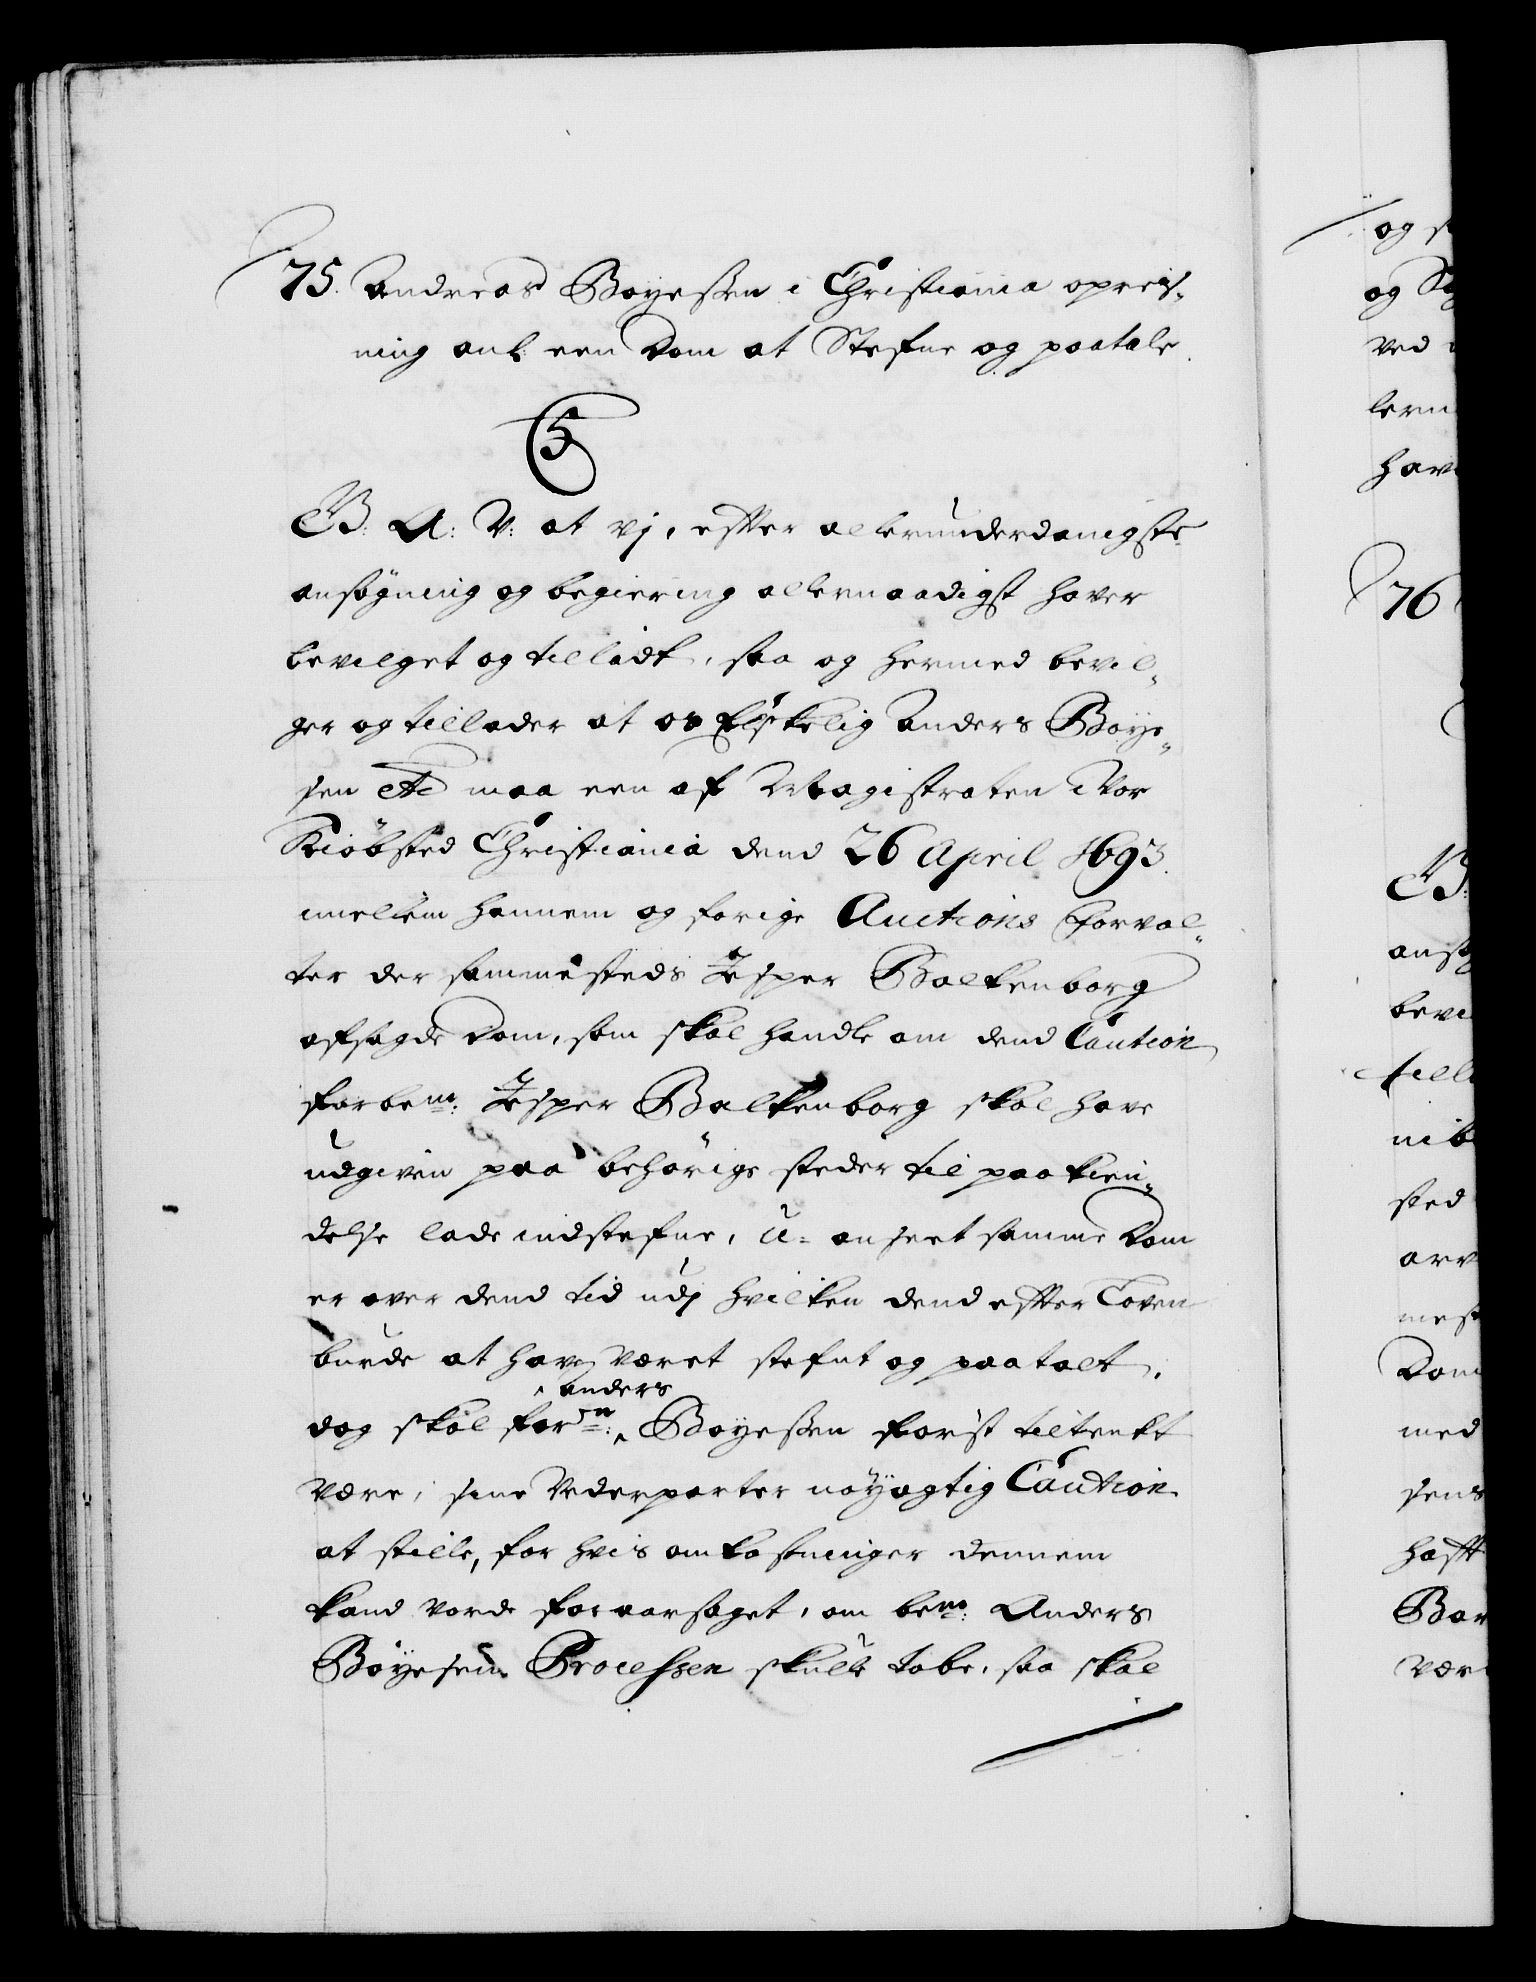 75. Andreas Boyessen i Christiania opreis-
ning anl: een Dom at Stefne og paatale.
C5
G. A: V: at vj, effter allerunderdanigste
ansøgning og begiering allernaadigst hafver
bevilget og tilladt, saa og hermed bevil-
ger og tillader at os Elskelig Anders Boye-
sen etc maa een af Magistraten i Vor
Kiøbsted Christiania dend 26 April 1693.
imellem hannem og forige Auctions Forval-
ter der sammesteds Jesper Balkenborg
afsagde Dom, som skal handle om dend Caution
forbem: Jesper Balkenborg skal have
udgiven paa behørige steder til paakien-
delse lade indstefne, u-anseet samme Dom
er over dend tid udj hvilken dend effter Loven
burde at have været stefnt og paatalt,
dog skal forn: Anders Boyessen først tiltenkt
være, sine Vederparter nøyagtig Caution
at stille, for hvis omkostninger dennem
kand vorde foraarsaget, om bem: Anders
Boyesen Processen skulle tabe, saa skal
og
og
ved
have
76
G:
ansø
bevi
till
sted
arv
mest
Dom
med
sens
hafft
Bor
være